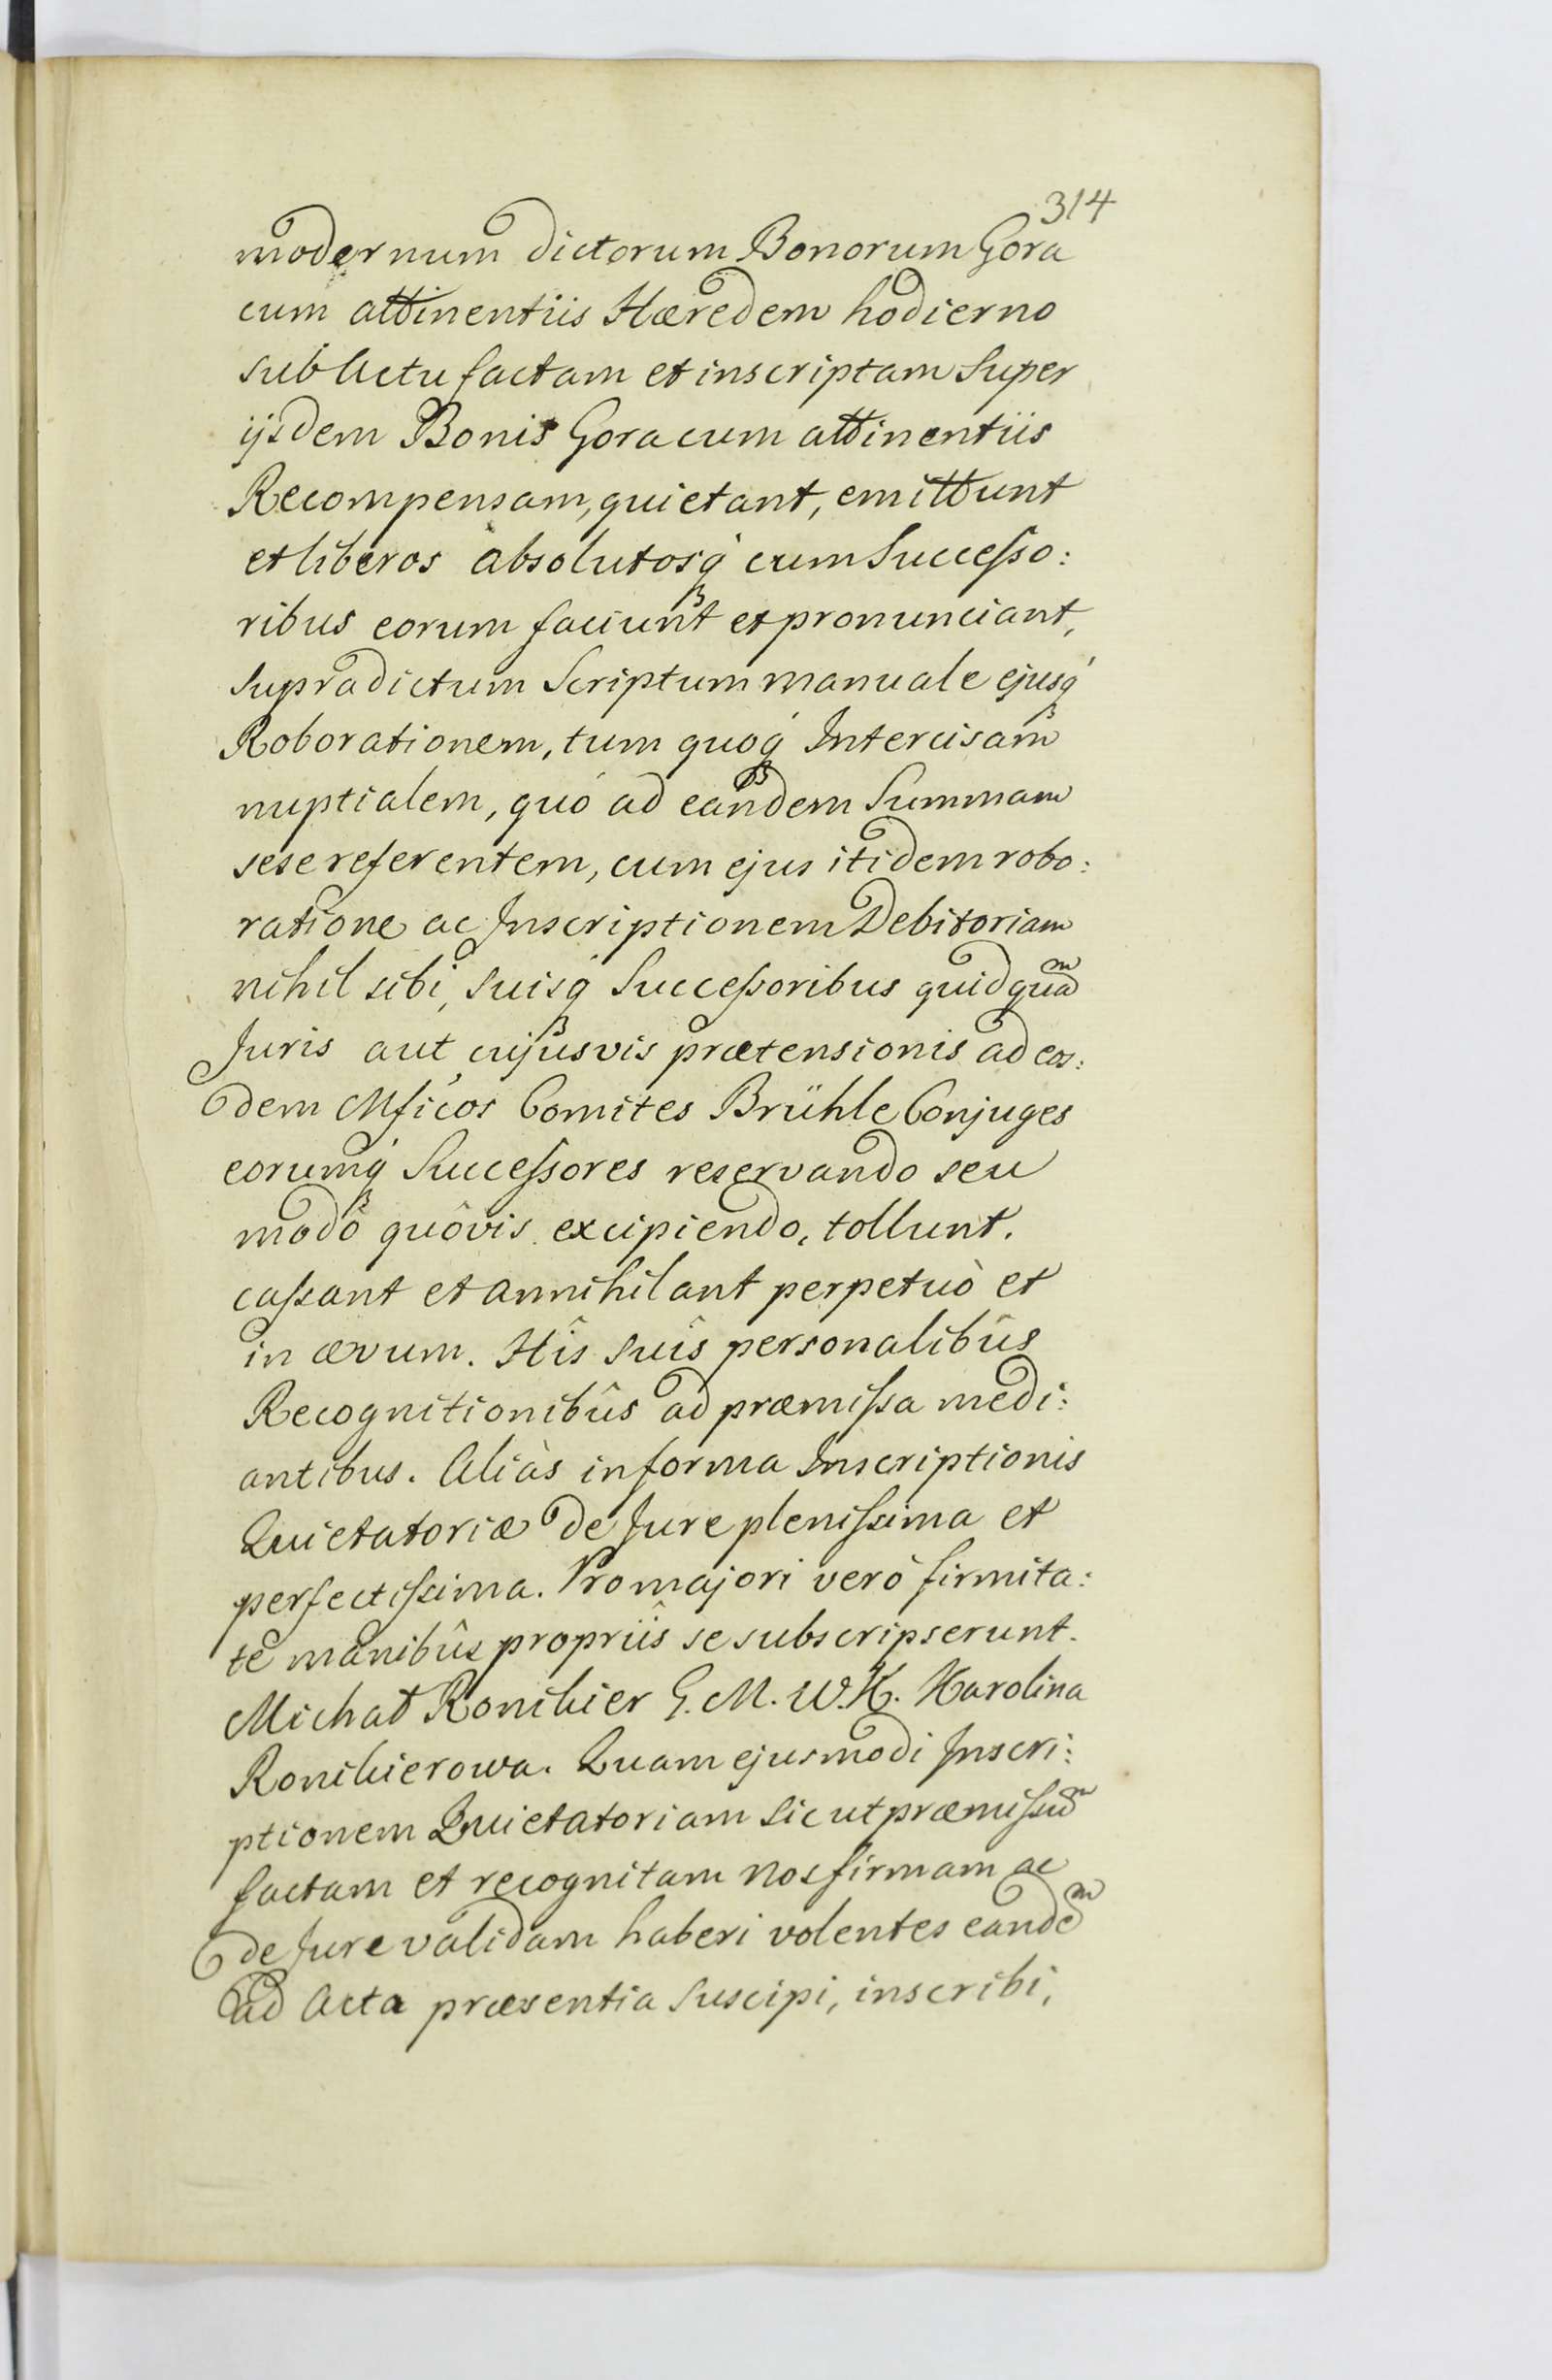 314
modernum dictorum Bonorum Gora
cum attinentiis Hæredem hodierno
sub Actu factam et inscriptam Super
ijsdem Bonis Gora cum attinentiis
Recompensam, quietant, emittunt
et liberos absolutosq́ cum Successo:
ribus eorum faciunt et pronunciant,
supradictum Scriptum manuale ejusq́
Roborationem, tum quoq́ Intercisam
nuptialem, quó ad eandem Summam
sese referentem, cum ejus itidem robo:
ratione ac Inscriptionem Debitoriam
nihil sibi, suisq́ Successoribus quidquam
Juris aut cujusvis prætensionis ad eos:
dem Mficos Comites Brühle Conjuges
eorumq́ Successores reservando seu
modô quôvis excipiendo, tollunt.
cassant et annihilant perpetuò et
in ævum. Hîs suîs personalibûs
Recognitionibûs ad præmissa medi:
antibus. Aliàs in forma Inscriptionis
Quietatoriæ de Jure plenissima et
perfectissima. Pro majori verò firmita:
te manibûs propriîs se subscripserunt.
Michał Ronikier G. M. W. K. Karolina
Ronikierowa. Quam ejusmodi Inscri:
ptionem Quietatoriam sic ut præmissum
factam et recognitam nos firmam ac
de Jure validam haberi volentes eandem
ad Acta præsentia suscipi, inscribi,